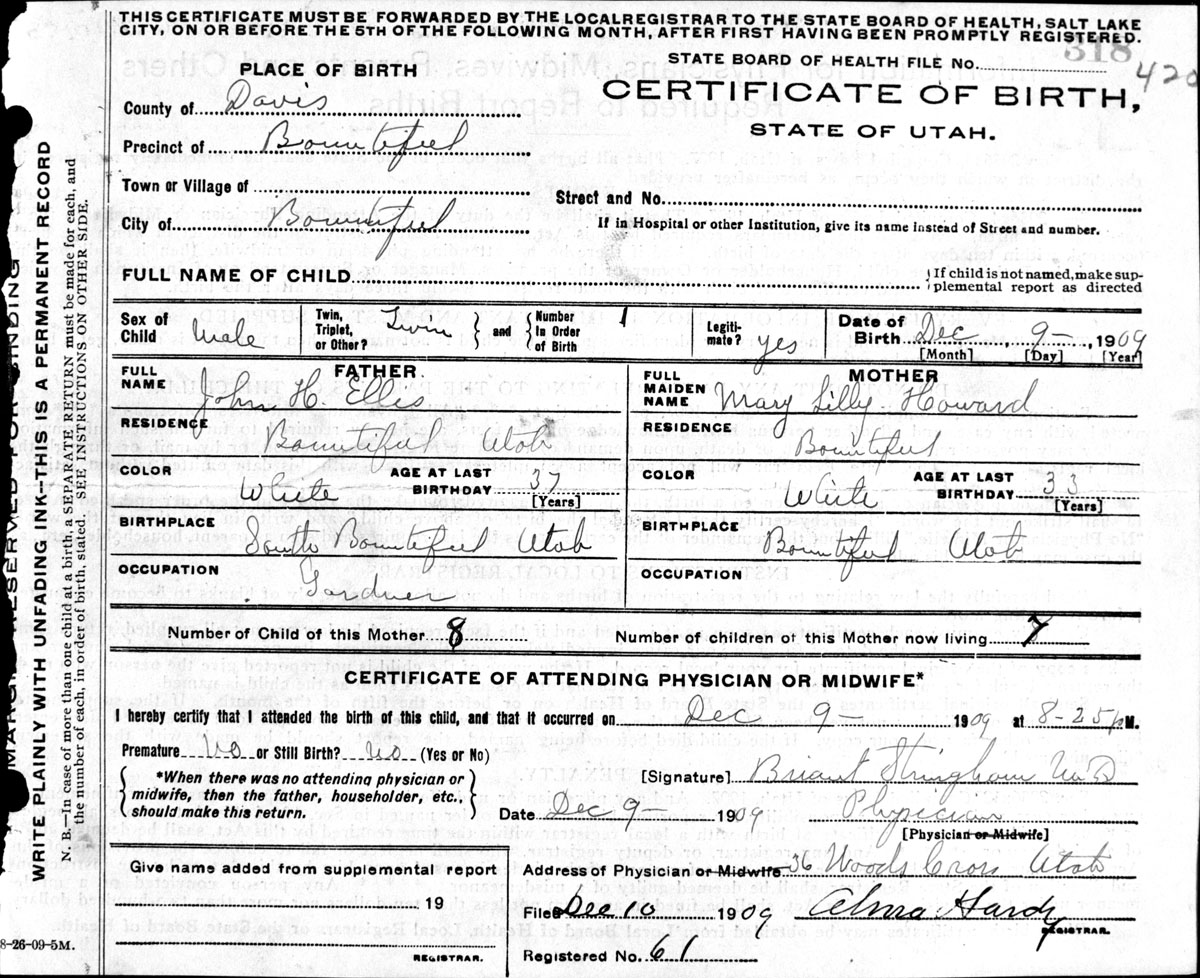 THIS CERTIFICATE MUST BE FORWARDED BY THE LOCAL REGISTRAR TO THE STATE BOARD OF HEALTH, SALT LAKE
CITY, ON OR BEFORE THE 5TH OF THE FOLLOWING MONTH, AFTER FIRST HAVING BEEN PROMPTLY REGISTERED.
318
STATE BOARD OF HEALTH FILE No. 420
PLACE OF BIRTH
CERTIFICATE OF BIRTH,
STATE OF UTAH.
County of Davis
Precinct of Bountiful
Town or Village of
Street and No.
City of Bountiful
If in Hospital or other Institution, give its name instead of Street and number.
FULL NAME OF CHILD
If child is not named, make sup-
plemental report as directed
Sex of Child Male
Twin, Triplet, or Other? Twin
and Number In Order of Birth 1
Legiti- mate? yes
Date of Birth Dec 9-, 1909
[Month] [Day] [Year]
FATHER
FULL NAME John H. Ellis
RESIDENCE Bountiful Utah
COLOR White
AGE AT LAST BIRTHDAY 37 [Years]
BIRTHPLACE South Bountiful Utah
OCCUPATION Gardner
MOTHER
FULL MAIDEN NAME Mary Lilly Howard
RESIDENCE Bountiful
COLOR White
AGE AT LAST BIRTHDAY 33 [Years]
BIRTHPLACE Bountiful Utah
OCCUPATION
Number of Child of this Mother 8 Number of children of this Mother now living 7
CERTIFICATE OF ATTENDING PHYSICIAN OR MIDWIFE*
I hereby certify that I attended the birth of this child, and that it occurred on Dec 9- 1909 at 8-25 p M.
Premature no or Still Birth? no (Yes or No)
*When there was no attending physician or
midwife, then the father, householder, etc.,
should make this return.
[Signature] Briant Stringham M.D
Date Dec 9- 1909 Physician
[Physician or Midwife]
Address of Physician or Midwife 36 Woods Cross Utah
Give name added from supplemental report
19
REGISTRAR.
Filed Dec 10 1909 Alma Hardy
REGISTRAR.
Registered No. 61
8-26-09-5M.
MARGIN RESERVED FOR BINDING
WRITE PLAINLY WITH UNFADING INK—THIS IS A PERMANENT RECORD
N. B.—In case of more than one child at a birth, a SEPARATE RETURN must be made for each, and
the number of each, in order of birth, stated. SEE INSTRUCTIONS ON OTHER SIDE.